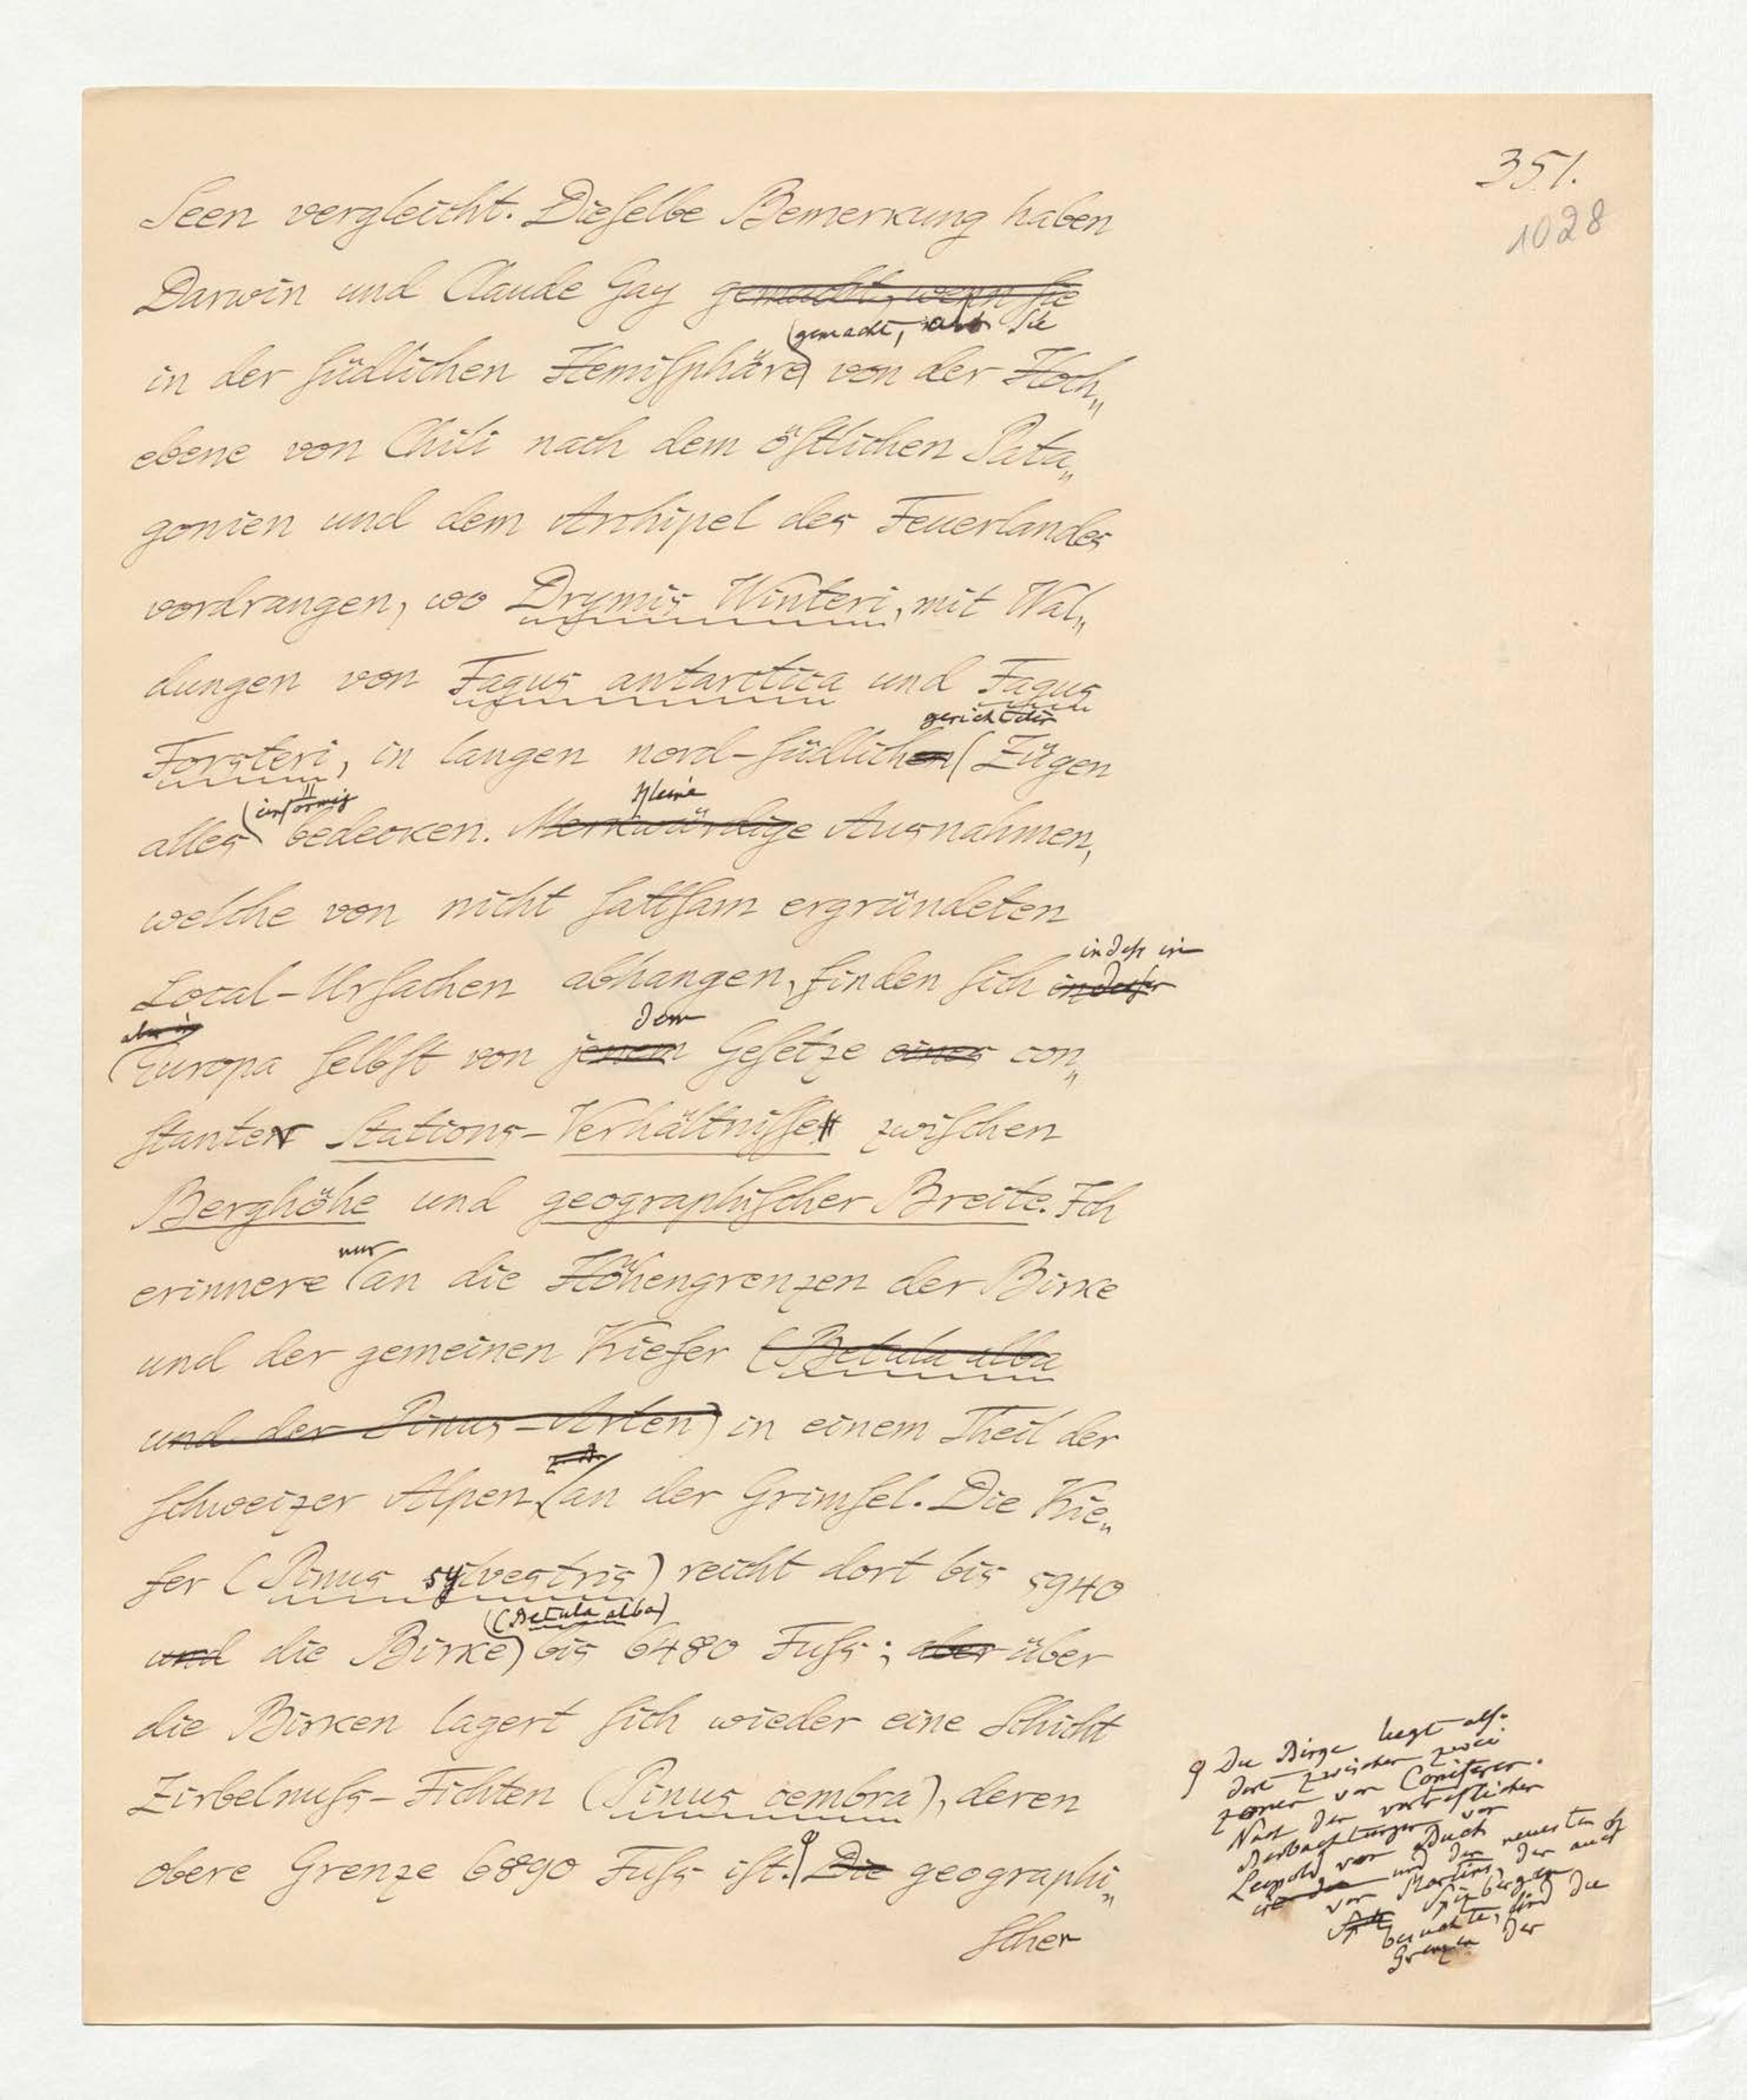 351.
1028
Seen vergleicht. Dieselbe Bemerkung haben
Darwin und Claude Gay gemacht, wenn sie
gemacht, als Sie
in der südlichen Hemisphäre von der Hoch„
ebene von Chili nach dem östlichen Pata„
gonien und dem Archipel des Feuerlandes
vordrangen, wo Drymis Winteri, mit Wal„
dungen von Fagus antarctica und Fagus
gerichteter
Forsteri, in langen nord-südlichen Zügen
einförmig
Kleine
alles bedecken. Merkwürdige Ausnahmen,
welche von nicht sattsam ergründeten
indeß in
Local-Ursachen abhangen, finden sich
aber in
dem
Europa selbst von jenem Gesetze eines con„
stanter Stations-Verhältnisse zwischen
Berghöhe und geographischer Breite. Ich
nur
erinnere an die Höhengrenzen der Birke
und der gemeinen Kiefer (Betula alba
und der Pinus-Arten) in einem Theil der
schweizer Alpen, an der Grimsel. Die Kie„
fer (Pinus sylvestris) reicht dort bis 5940
(Betula alba)
und die Birke bis 6480 Fuß; aber über
die Birken lagert sich wieder eine Schicht
Zirbelnuß-Fichten (Pinus cembra), deren
obere Grenze 6890 Fuß ist. Die geographi„
scher
Die Birge liegt also
dort zwischen zwei
Zonen von Coniferen.
Nach den vortreflichen
Beobachtungen von
Leopold von Buch
und den neuesten
von Martins, der auch
Spizbergen
besuchte, sind die
Grenzen der